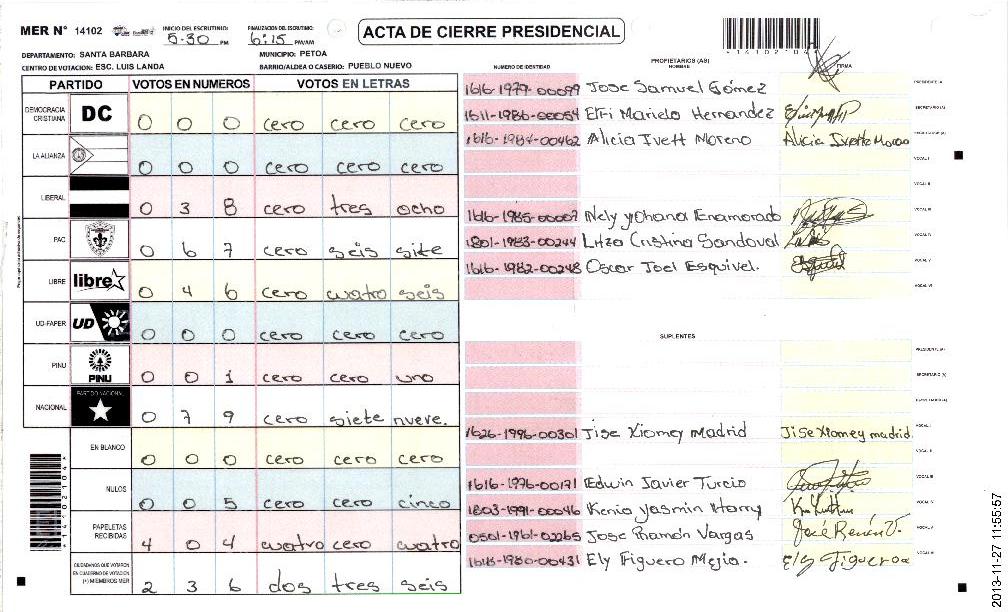 MER N° 14102
INICIO DEL ESCRUTINIO: 5:30 PM
FINALIZACION DEL ESCRUTINIO: 6:15 PM/AM
ACTA DE CIERRE PRESIDENCIAL
*14102104*
DEPARTAMENTO: SANTA BARBARA
MUNICIPIO: PETOA
CENTRO DE VOTACION: ESC. LUIS LANDA
BARRIO/ALDEA O CASERIO: PUEBLO NUEVO
PARTIDO VOTOS EN NUMEROS VOTOS EN LETRAS
DEMOCRACIA CRISTIANA DC 0 0 0 cero cero cero
LA ALIANZA 0 0 0 cero cero cero
LIBERAL 0 3 8 cero tres ocho
PAC 0 6 7 cero seis site
LIBRE libre 0 4 6 cero cuatro seis
UD-FAPER UD 0 0 0 cero cero cero
PINU PINU 0 0 1 cero cero uno
NACIONAL PARTIDO NACIONAL 0 7 9 cero siete nueve.
EN BLANCO 0 0 0 cero cero cero
NULOS 0 0 5 cero cero cinco
PAPELETAS RECIBIDAS 4 0 4 cuatro cero cuatro
CIUDADANOS QUE VOTARON EN CUADERNO DE VOTACION (+) MIEMBROS MER 2 3 6 dos tres seis
*14102104*
NUMERO DE IDENTIDAD PROPIETARIOS (AS) NOMBRE FIRMA
1616-1979-00099 Jose Samuel Gómez PRESIDENTE/A
1611-1986-00054 Elfi Mariela Hernandez SECRETARIO (A)
1616-1987-00462 Alicia Ivett Moreno Alicia Ivette Moreno
VOCAL I
VOCAL II
1616-1985-00007 Nely Yohana Enamorado VOCAL III
1801-1983-00244 Litza Cristina Sandoval VOCAL IV
1616-1982-00248 Oscar Joel Esquivel. VOCAL V
VOCAL VI
SUPLENTES
PRESIDENTE (A)
SECRETARIO (A)
1626-1996-00301 Jise Xiomey Madrid Jise Xiomey madrid. VOCAL I
VOCAL II
1616-1976-00171 Edwin Javier Turcio VOCAL III
1803-1991-00046 Kenia Yasmin Harry VOCAL IV
0501-1961-02265 Jose Ramón Vargas VOCAL V
1618-1980-00431 Ely Figuero Mejia. Ely Figueroa VOCAL VI
2013-11-27 11:55:57